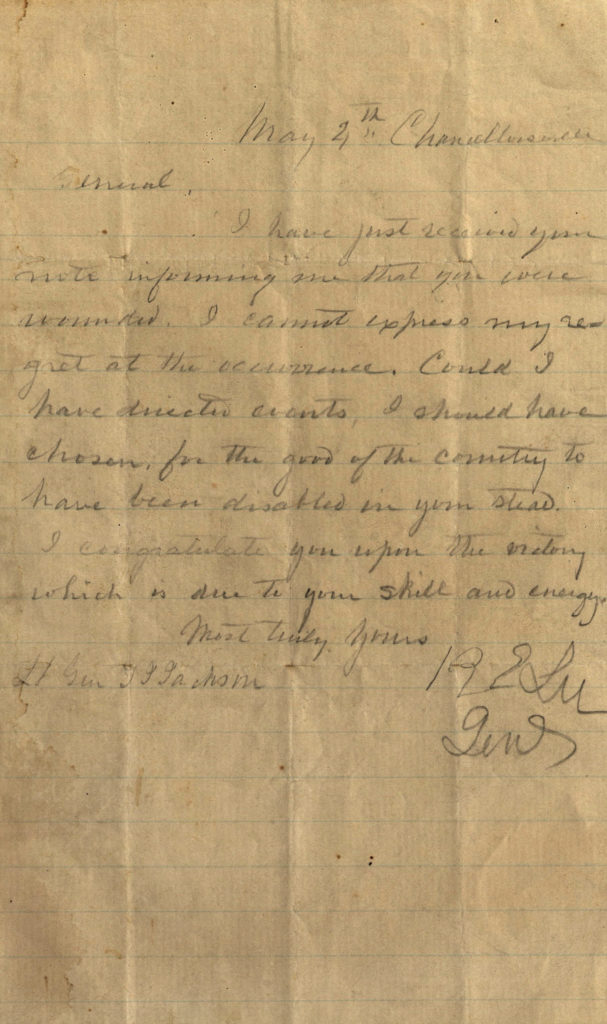 May 4th Chancellorsville
General,
I have just received your
note informing me that you were
wounded. I cannot express my re-
gret at the occurrence. Could I
have directed events, I should have
chosen, for the good of the country to
have been disabled in your stead.
I congratulate you upon the victory
which is due to your skill and energy.
Most truly Yours
Lt Gen T J Jackson
R E Lee
Genl